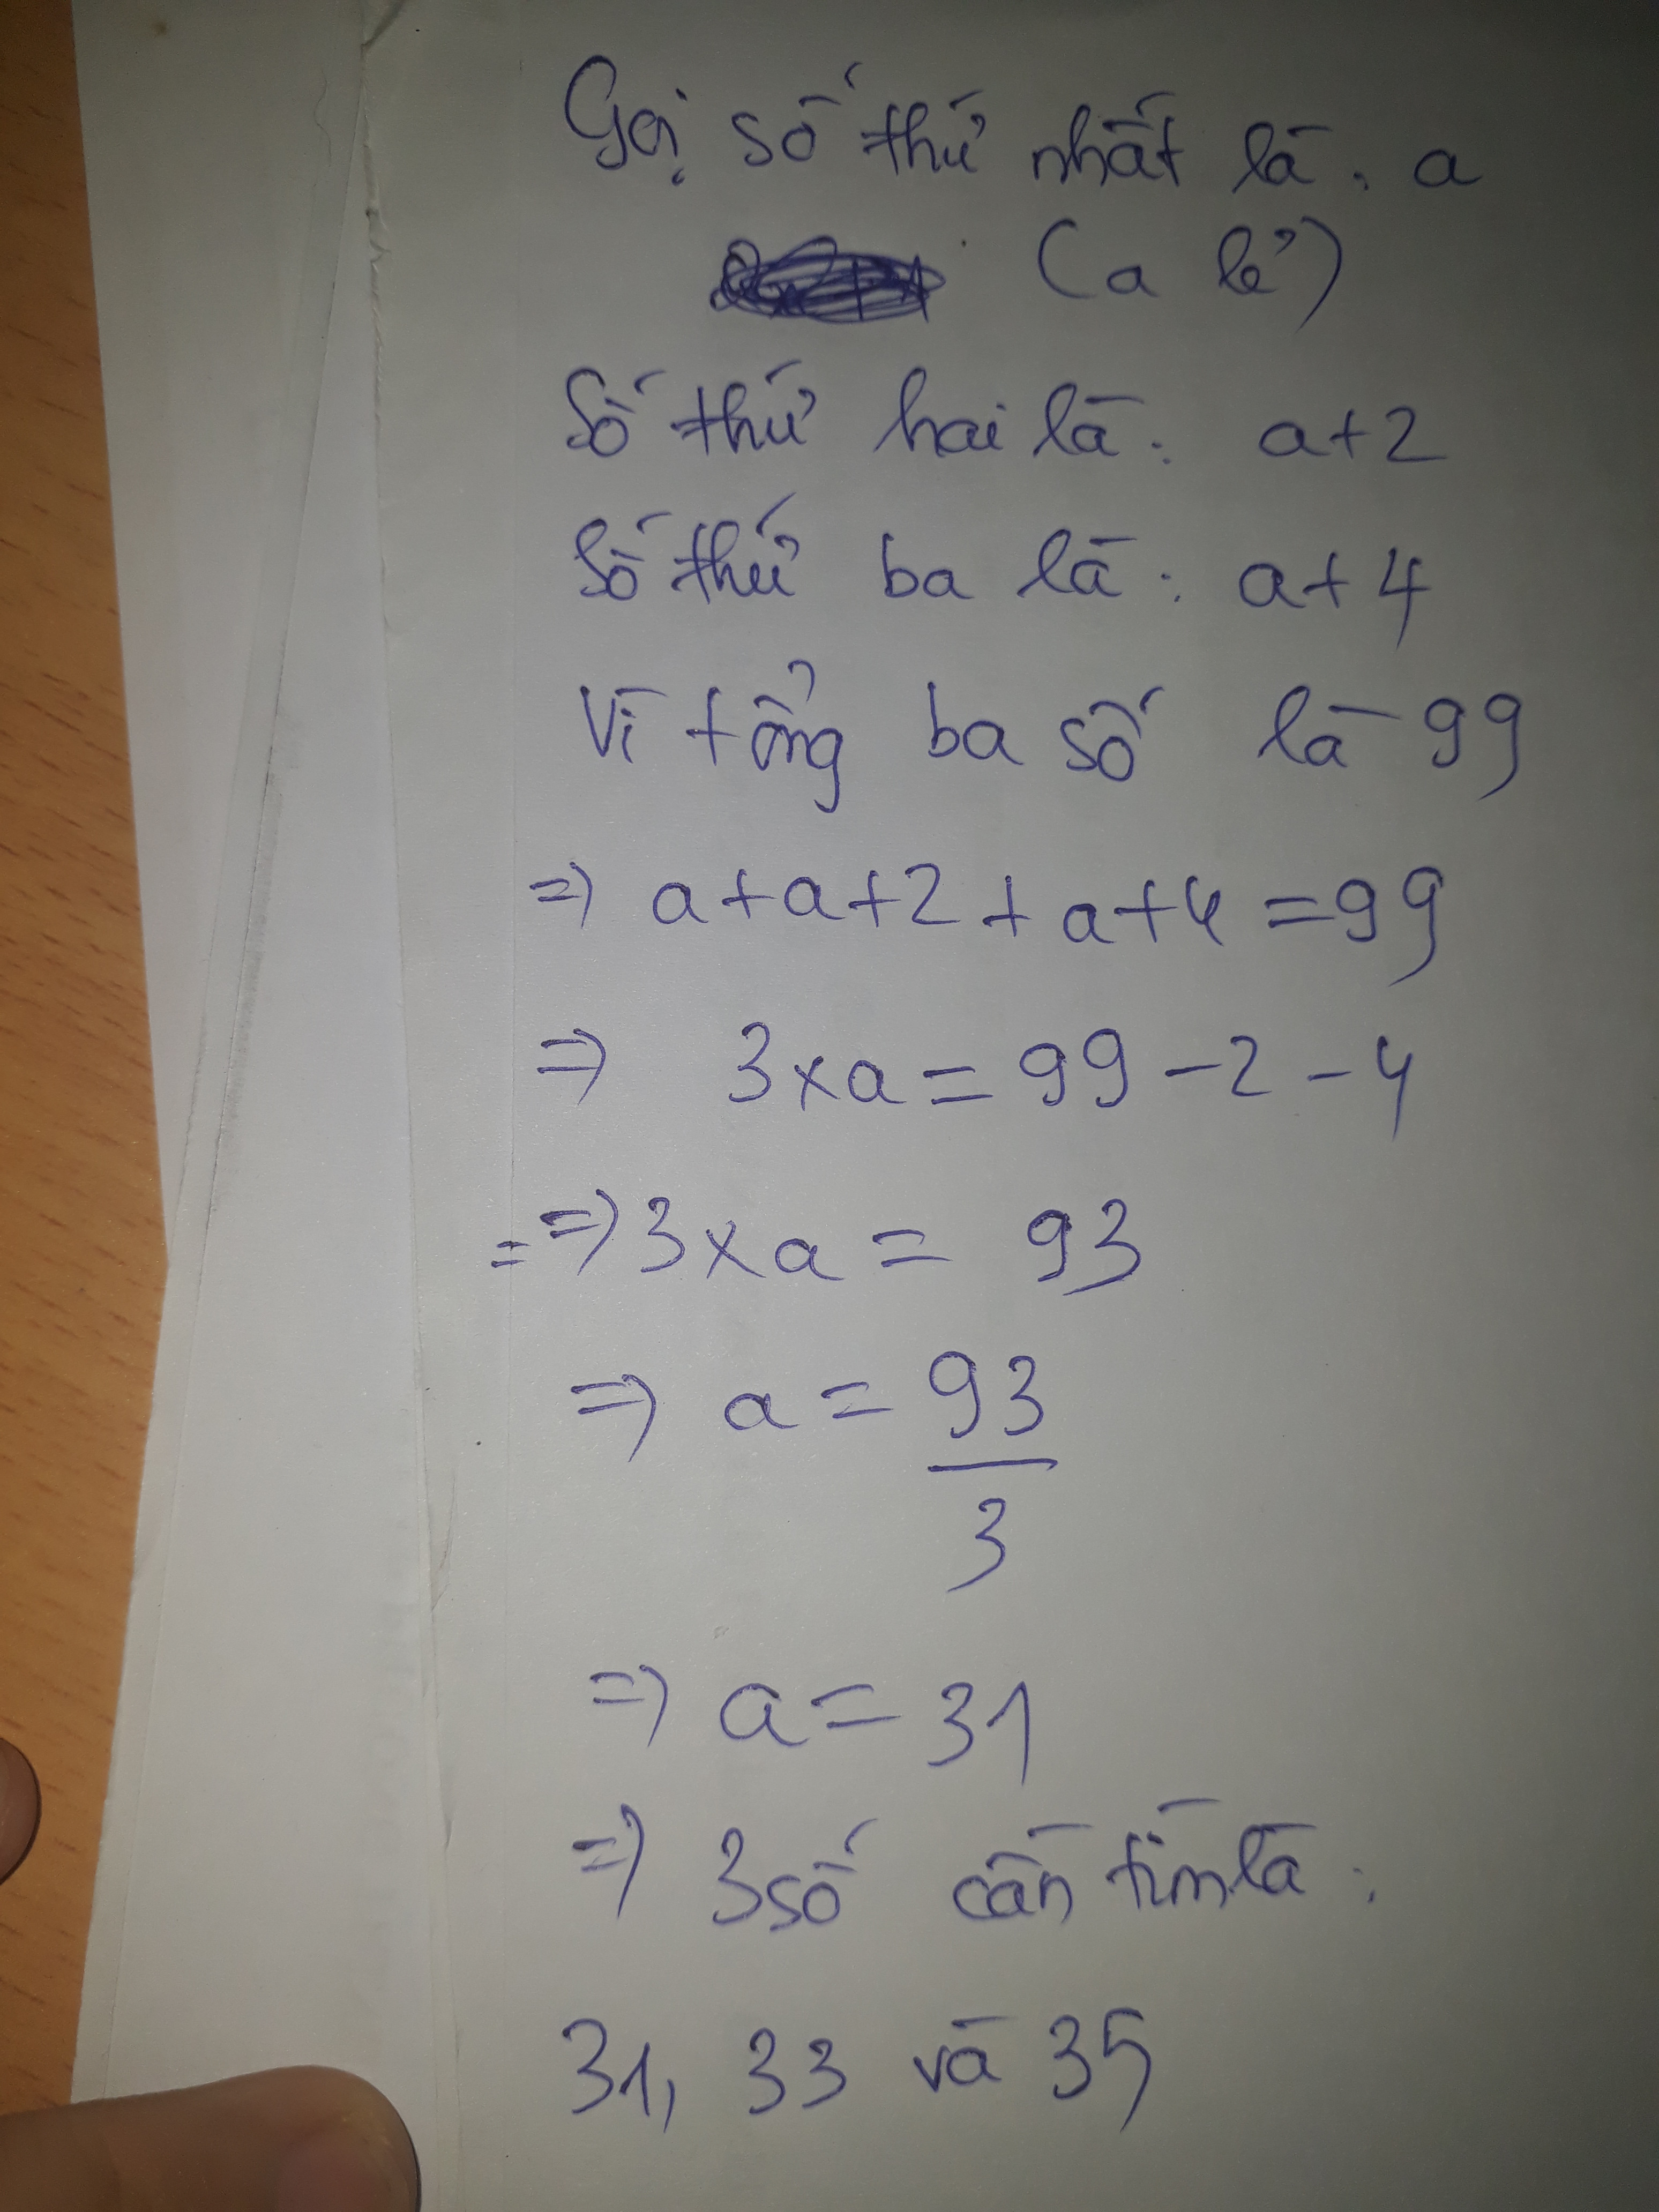 Gọi số thứ nhất là: a
(a lẻ)
Số thứ hai là: a+2
Số thứ ba là: a+4
Vì tổng ba số là 99
=> a+a+2+a+4=99
=> 3×a=99-2-4
= => 3×a= 93
=> a= 93/3
=> a=31
=> 3 số cần tìm là:
31, 33 và 35